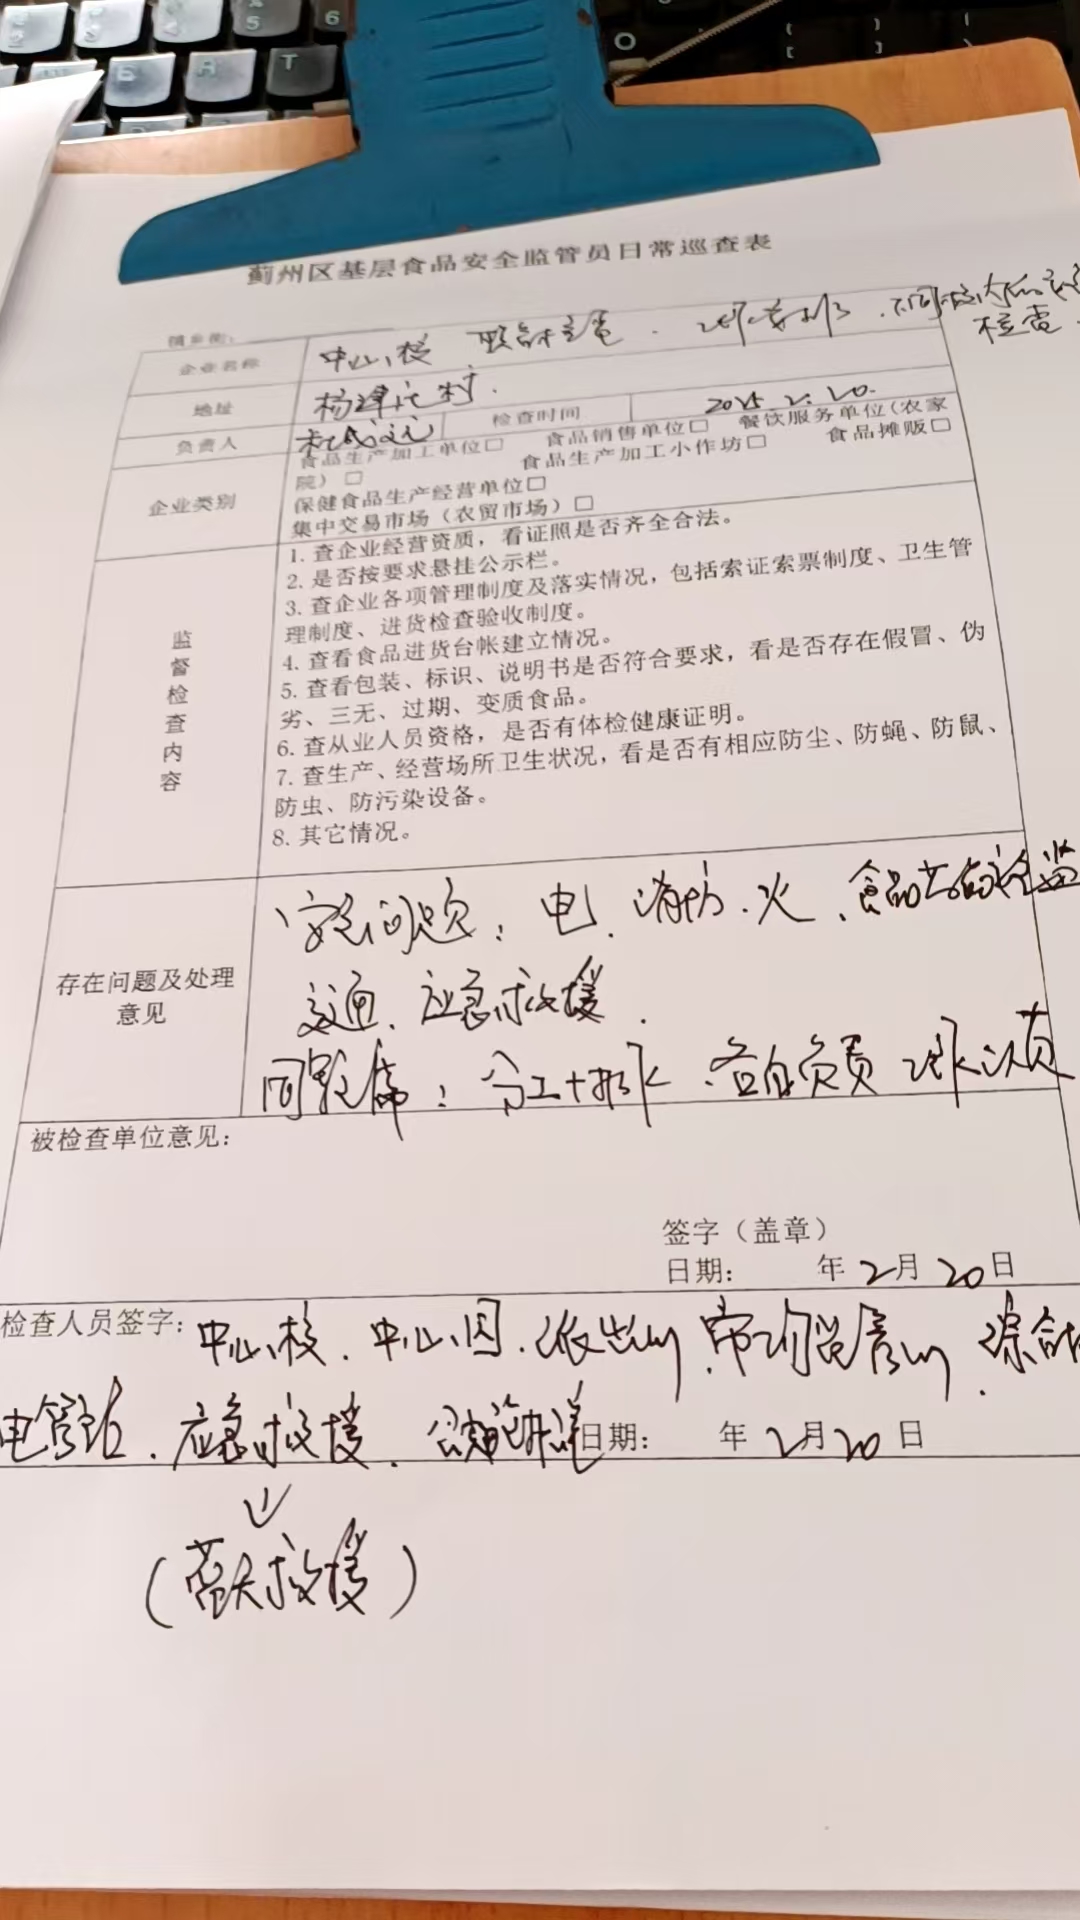 蓟州区基层食品安全监管员日常巡查表
镇乡街:
企业名称 中心小校 联合检查
检查
地址 杨津庄村
负责人 检查时间 2025 2. 20.
企业类别 食品生产加工单位□ 食品销售单位□ 餐饮服务单位（农家
院）□ 食品生产加工小作坊□ 食品摊贩□
保健食品生产经营单位□
集中交易市场（农贸市场）□
监督检查内容
1. 查企业经营资质，看证照是否齐全合法。
2. 是否按要求悬挂公示栏。
3. 查企业各项管理制度及落实情况，包括索证索票制度、卫生管
理制度、进货检查验收制度。
4. 查看食品进货台帐建立情况。
5. 查看包装、标识、说明书是否符合要求，看是否存在假冒、伪
劣、三无、过期、变质食品。
6. 查从业人员资格，是否有体检健康证明。
7. 查生产、经营场所卫生状况，看是否有相应防尘、防蝇、防鼠、
防虫、防污染设备。
8. 其它情况。
存在问题及处理
意见
安全问题: 电、消防、火、食品
交通、应急救援.
分工 各自负责
被检查单位意见:
签字（盖章）
日期: 年2月20日
检查人员签字: 中心小校、中心小园、派出所、综合
电管站、应急救援、 日期: 年2月20日
(蓝天救援)